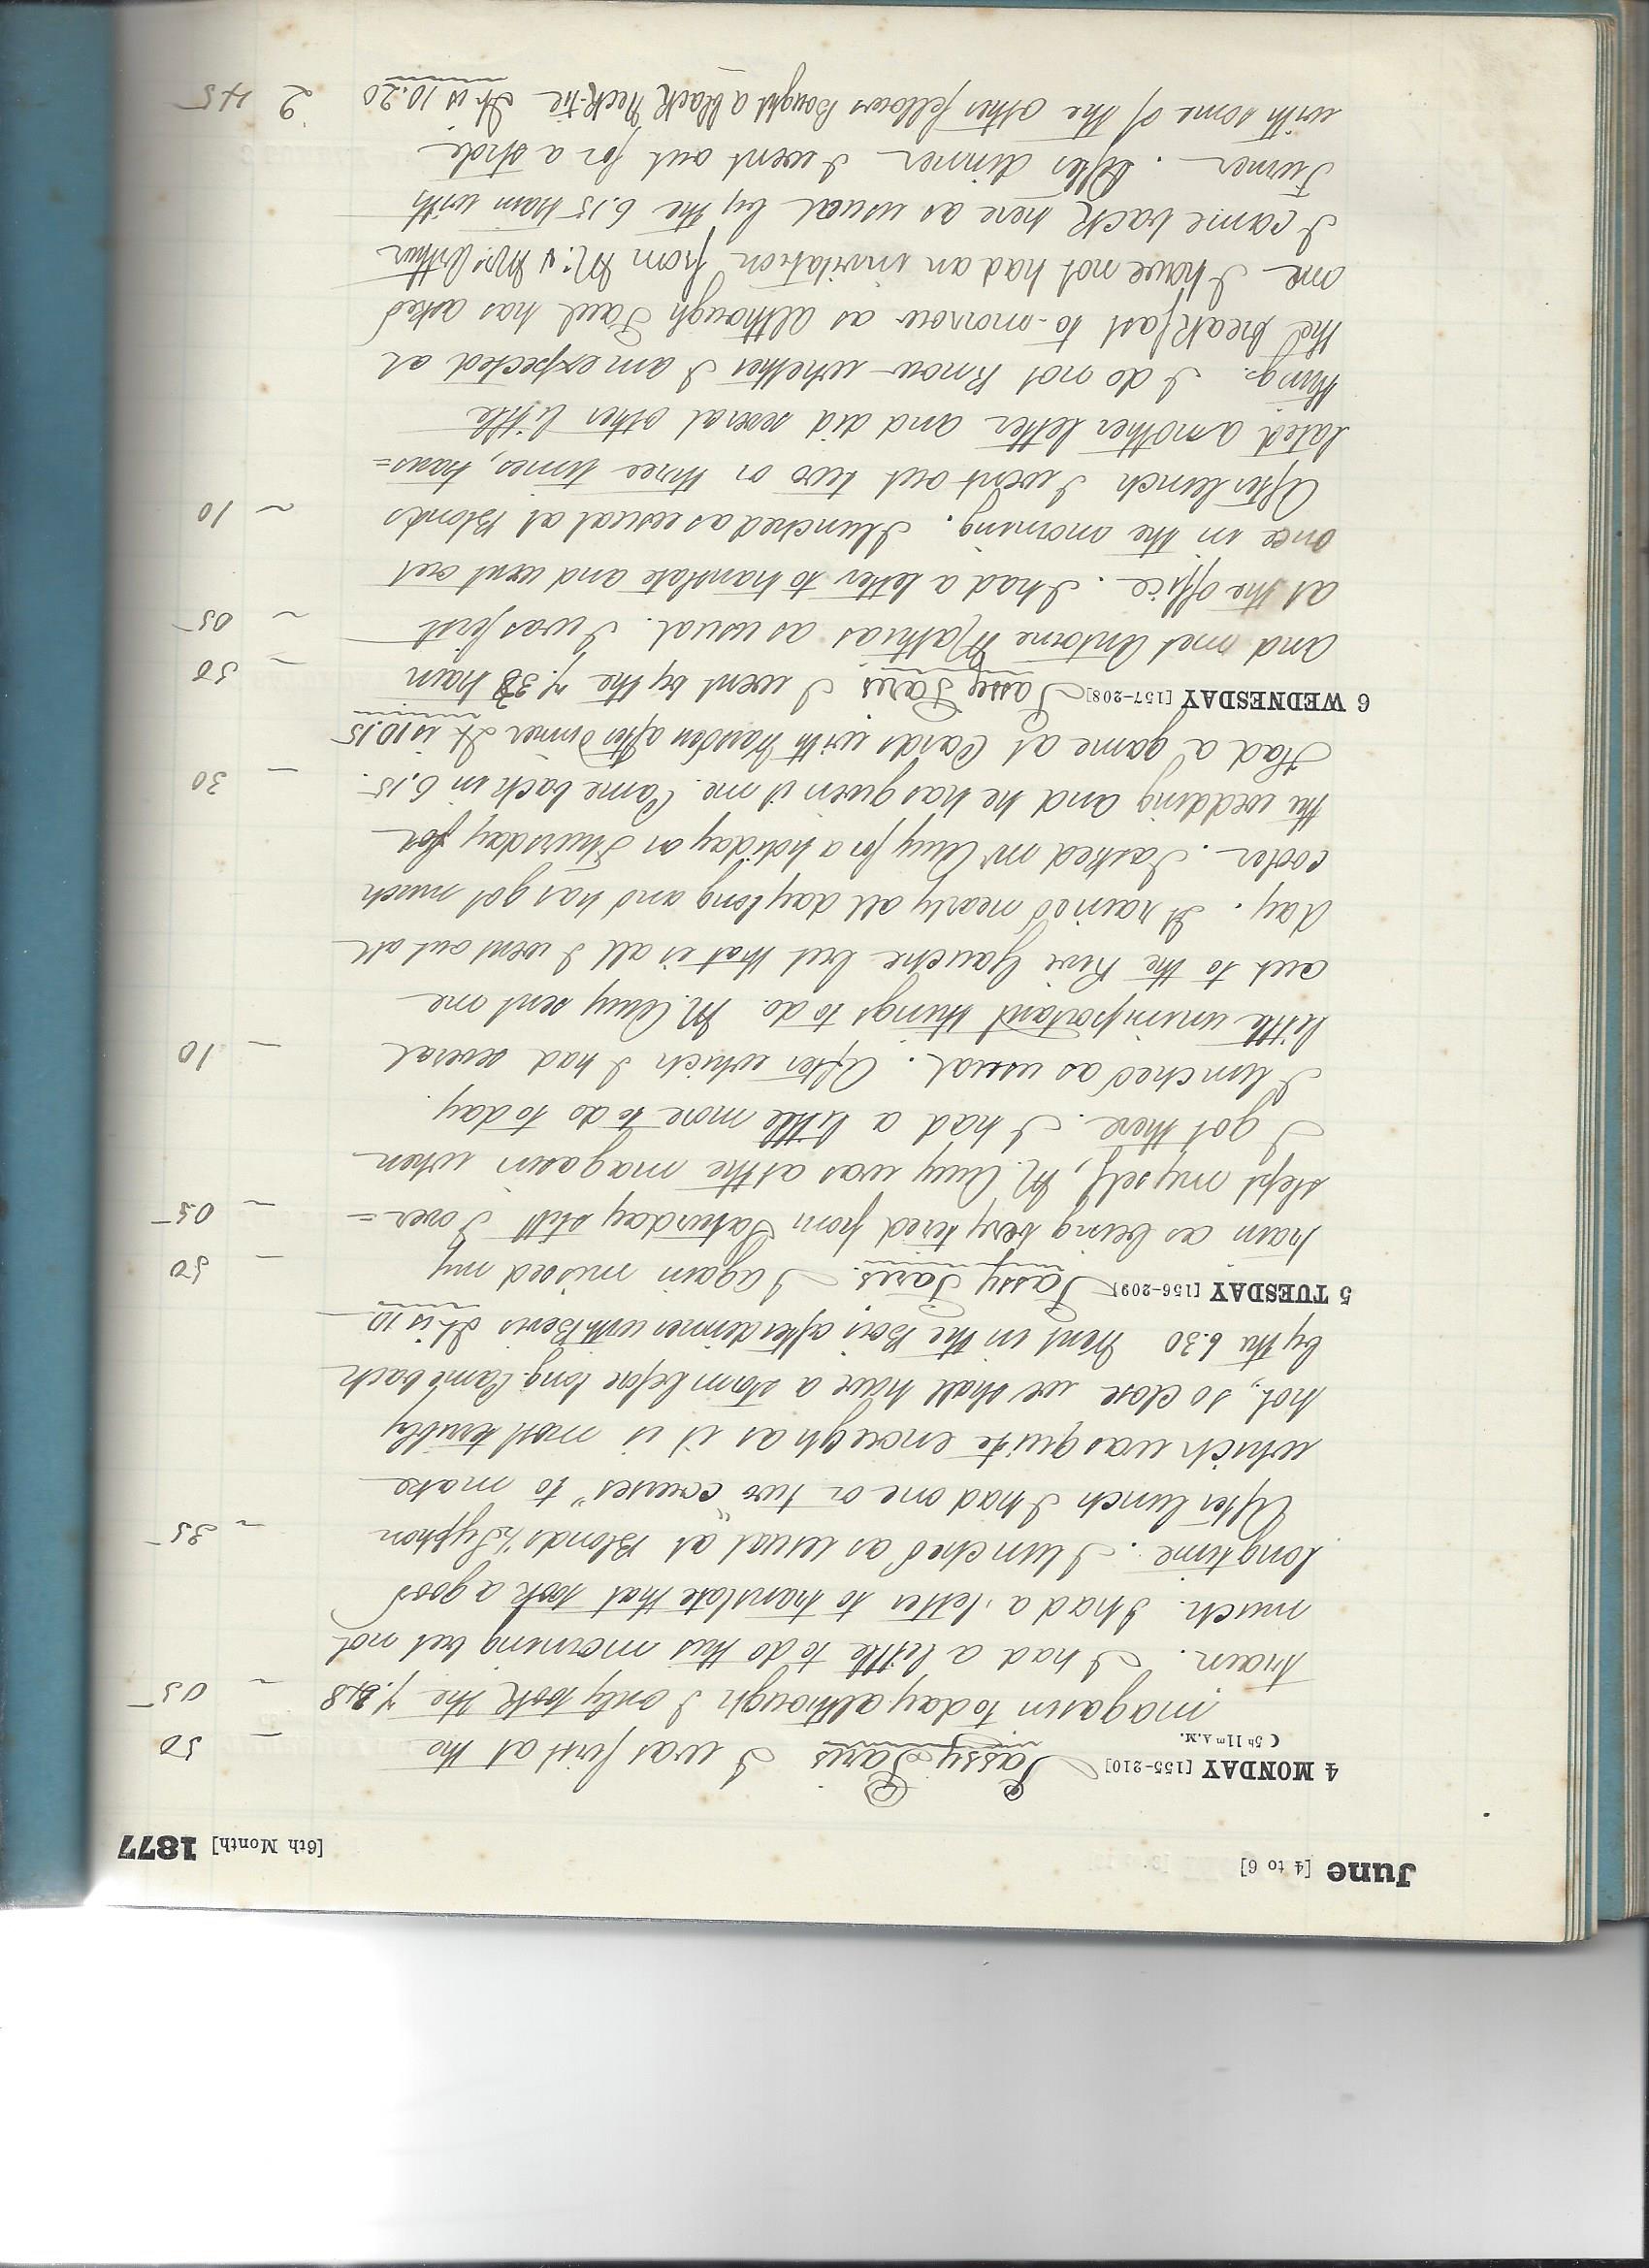 June [4 to 6] [6th Month] 1877
4 MONDAY [155-210] Passy Paris I was first at the — 50
☾ 5h 11m A.M.
magasin today although I only took the 7.48 — 05
train. I had a little to do this morning but not
much. I had a letter to translate that took a good
long time. I lunched as usual at Blonds, Syphon — 35
After lunch I had one or two "courses" to make
which was quite enough as it is most terribly
hot, so close we shall have a storm before long. Came back
by the 6.30 Went in the Bois after dinner with Bevis It is 10
5 TUESDAY [156-209] Passy Paris. I again missed my — 50
train as being very tired from Saturday still I over= — 05
slept myself, M. Cuny was at the magasin when
I got there. I had a little more to do to day.
I lunched as usual. After which I had several — 10
little unimportant things to do. M. Cuny sent me
out to the Rive Gauche but that is all I went out all
day. It rained nearly all day long and has got much
cooler. I asked Mr Cuny for a holiday on Thursday for
the wedding and he has given it me. Came back in 6.15. — 30
Had a game at Cards with after dinner It is 10.15
6 WEDNESDAY [157-208] Passy Paris I went by the 7.38 train — 50
and met Antoine Mathias as usual. I was first — 05
at the office. I had a letter to translate and went out
once in the morning. I lunched as usual at Blonds — 10
After lunch I went out two or three times, trans=
lated another letter and did several other little
things. I do not know whether I am expected at
the breakfast to-morrow as although Paul has asked
me I have not had an invitation from Mr. & Mrs. Arthur
I came back here as usual by the 6.15 train with
Turner. After dinner I went out for a stroll
with some of the other fellows Bought a black Neck-tie It is 10.20 2 45